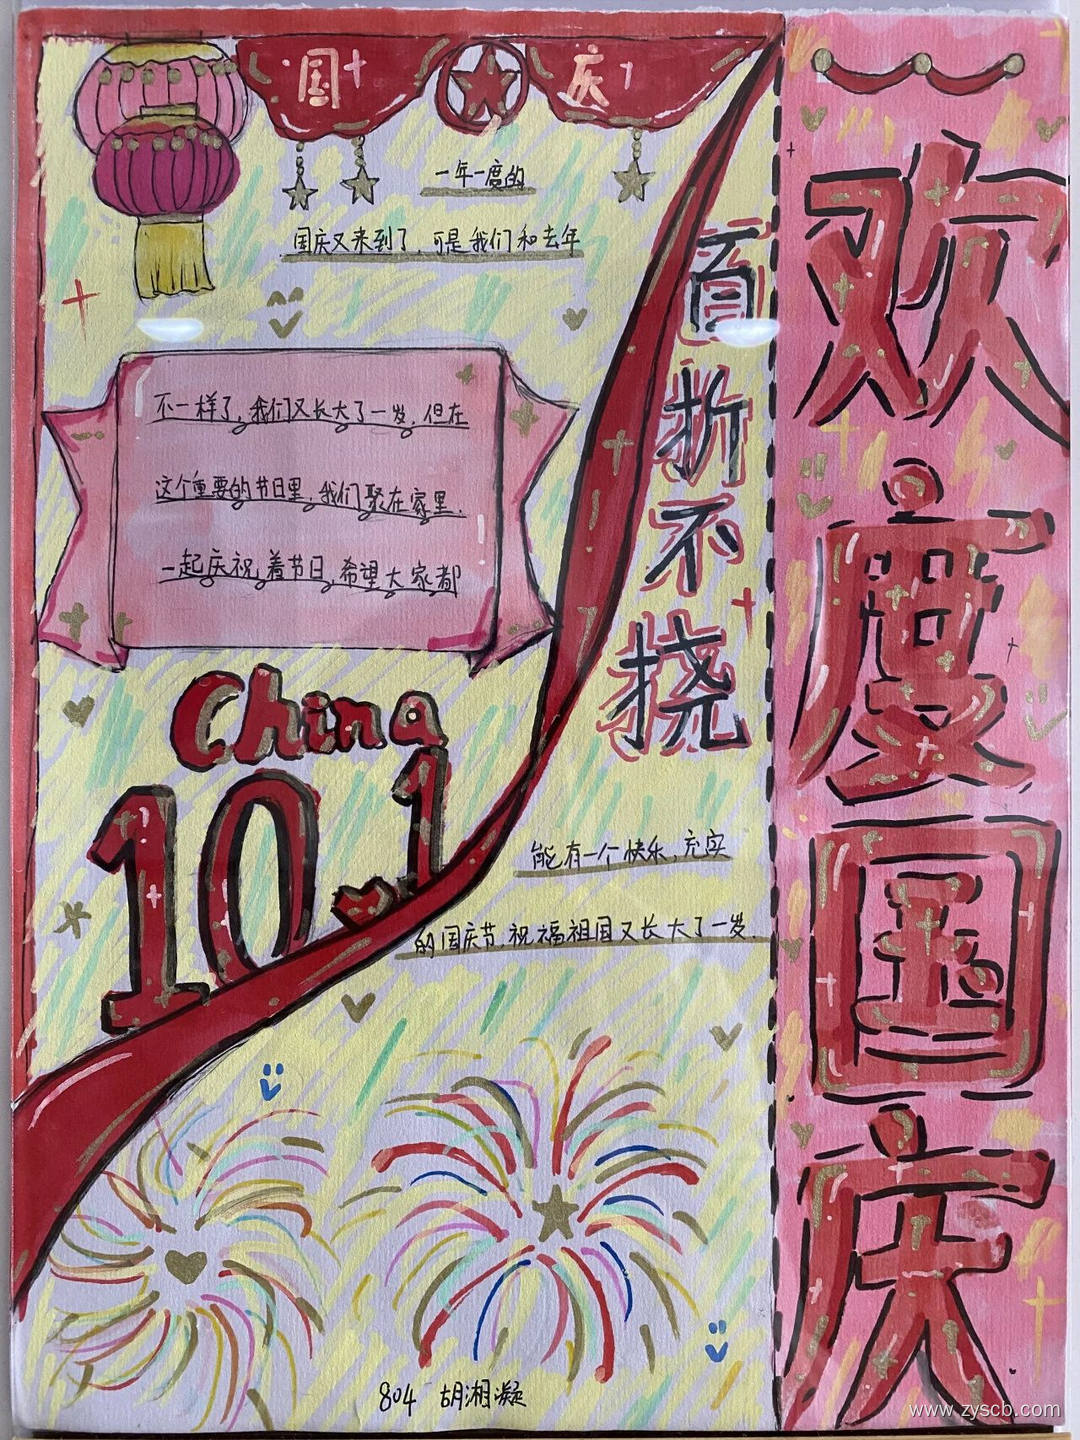 国庆
一年一度的
国庆又来到了，可是我们和去年
不一样了，我们又长大了一岁，但在
这个重要的节日里，我们聚在家里，
一起庆祝着节日，希望大家都
China
10.1
百折不挠
能有一个快乐，充实
的国庆节，祝福祖国又长大了一岁.
804 胡湘凝
欢度国庆
www.zyscb.com